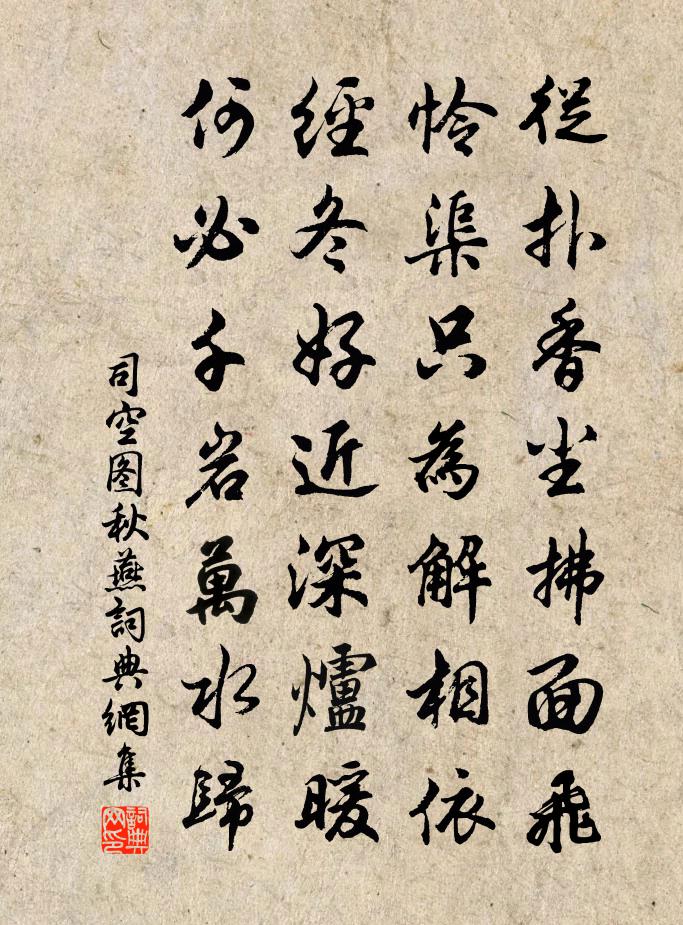 從扑香尘拂面飛
怜渠只為解相依
經冬好近深爐暖
何必千岩萬水歸
司空图秋燕詞典網集
詞典
网印